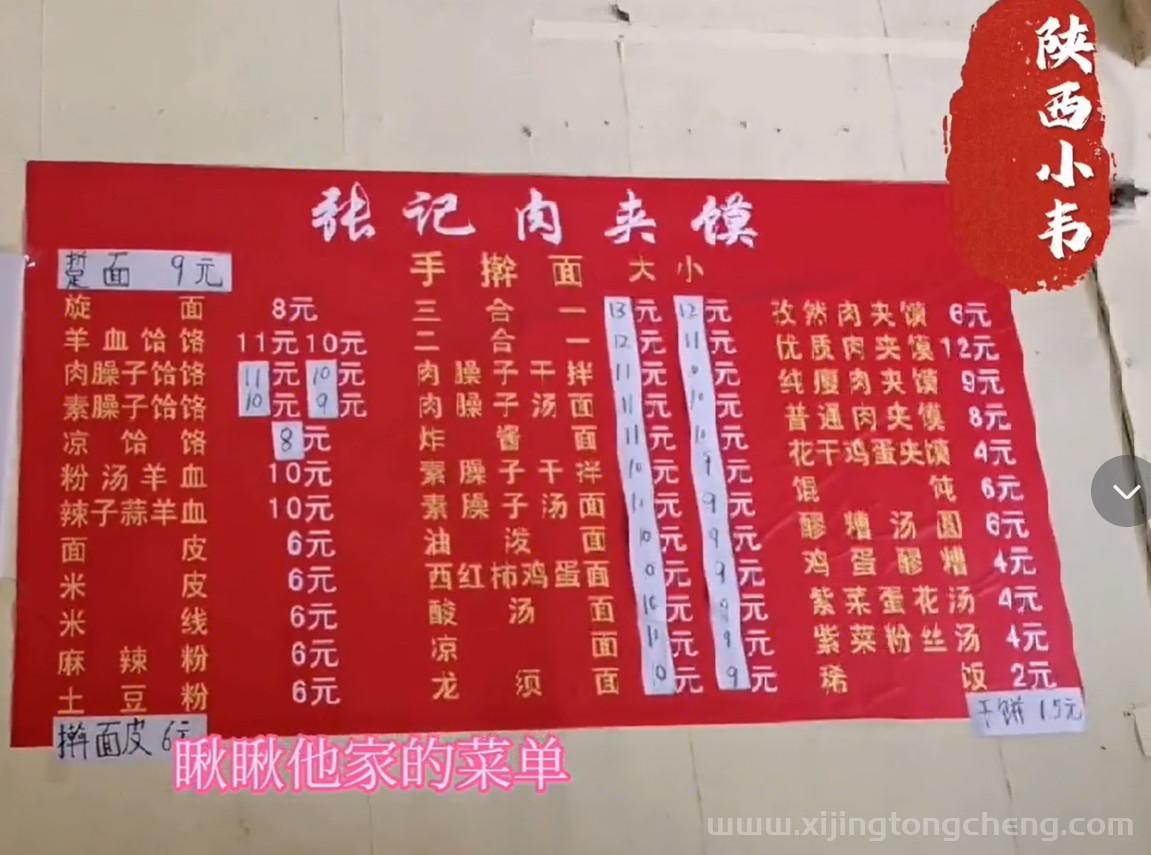 陕西小韦
张记肉夹馍
面 9元
旋面 8元
羊血饸饹 11元 10元
肉臊子饸饹 11元 10元
素臊子饸饹 10元 9元
凉饸饹 8元
粉汤羊血 10元
辣子蒜羊血 10元
面皮 6元
米皮 6元
米线 6元
麻辣粉 6元
土豆粉 6元
擀面皮 6元
手擀面 大 小
三合一 13元 12元
二合一 12元 11元
肉臊子干拌 11元 元
肉臊子汤面 11元 10元
炸酱面 11元 10元
素臊子干拌 10元 9元
素臊子汤面 元 9元
油泼面 10元 9元
西红柿鸡蛋面 元 9元
酸汤面 10元 9元
凉面 元 9元
龙须面 10元 9元
孜然肉夹馍 6元
优质肉夹馍 12元
纯瘦肉夹馍 9元
普通肉夹馍 8元
花干鸡蛋夹馍 4元
馄饨 6元
醪糟汤圆 6元
鸡蛋醪糟 4元
紫菜蛋花汤 4元
紫菜粉丝汤 4元
稀饭 2元
干饼 1.5元
瞅瞅他家的菜单
www.xijingtongcheng.com